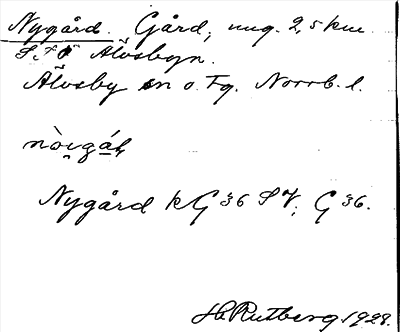 Nygård. Gård, ung. 2,5 km.
S.t.O Älvsbyn.
Älvsby sn o. Tg. Norrb. l.
Nygård k G 36 SV; G 36.
H. Rutberg 1928.